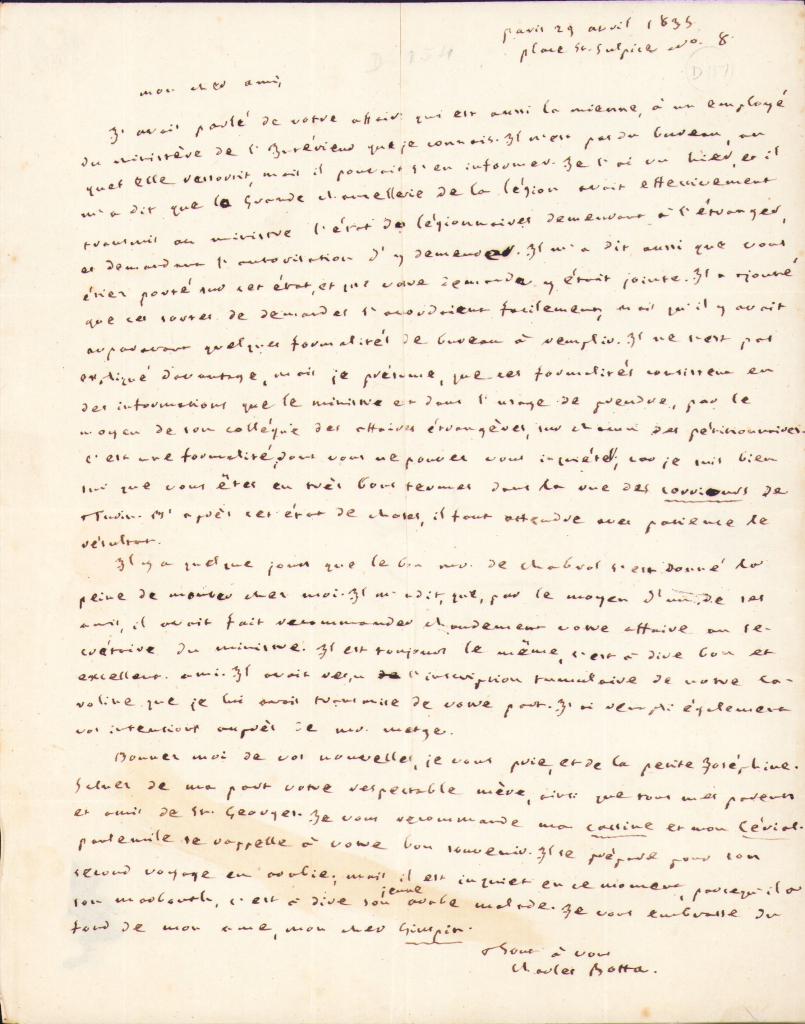 paris 29 avril 1835
place St. Sulpice no. 8.
D 154
D 157
mon cher ami,
J'avais parlé de votre affaire qui est aussi la mienne, à un employé
du ministère de l'Intérieur que je connais. Il n'est pas du bureau, au
quel elle ressortit, mais il pouvait s'en informer. Je l'ai vu hier, et il
m'a dit que la grande chancellerie de la légion avait effectivement
transmis au ministre l'état des légionnaires demeurant à l'étranger,
et demandant l'autorisation d'y demeurer. Il m'a dit aussi que vous
étiez porté sur cet état, et que votre demande y était jointe. Il a ajouté
que ces sortes de demandes s'accordaient facilement, mais qu'il y avait
auparavant quelques formalités de bureau à remplir. Il ne s'est pas
expliqué davantage, mais je présume, que ces formalités consistent en
des informations que le ministre est dans l'usage de prendre, par le
moyen de son collégue des affaires étrangères, sur chacun des pétitionnaires.
c'est une formalité, dont vous ne pouvez vous inquiéter, car je suis bien
sûr que vous êtes en très bons termes dans la rue des
Turin. D'après cet état de choses, il faut attendre avec patience le
résultat.
Il y a quelque jours que le bon mr. de chabrol s'est donné la
peine de monter chez moi. Il m'a dit, que, par le moyen d'un de ses
amis, il avait fait recommander chaudement votre affaire au se-
crétaire du ministre. Il est toujours le même, c'est à dire bon et
excellent ami. Il avait reçu l'inscription tumulaire de notre ca-
roline que je lui avais transmise de votre part. J'ai rempli également
vos intentions auprès de mr. metge.
Donnez moi de vos nouvelles, je vous prie, et de la petite Joséphine.
Saluez de ma part votre respectable mère, ainsi que tous mes parents
et amis de St. Georges. Je vous recommande ma cassine et mon
paulemile se rappelle à votre bon souvenir. Il se prépare pour son
second voyage en arabie; mais il est inquiet en ce moment, parcequ'il a
son c'est à dire son jeune arabe malade. Je vous embrasse du
fond de mon ame, mon cher
Tout à vous
Charles Botta.